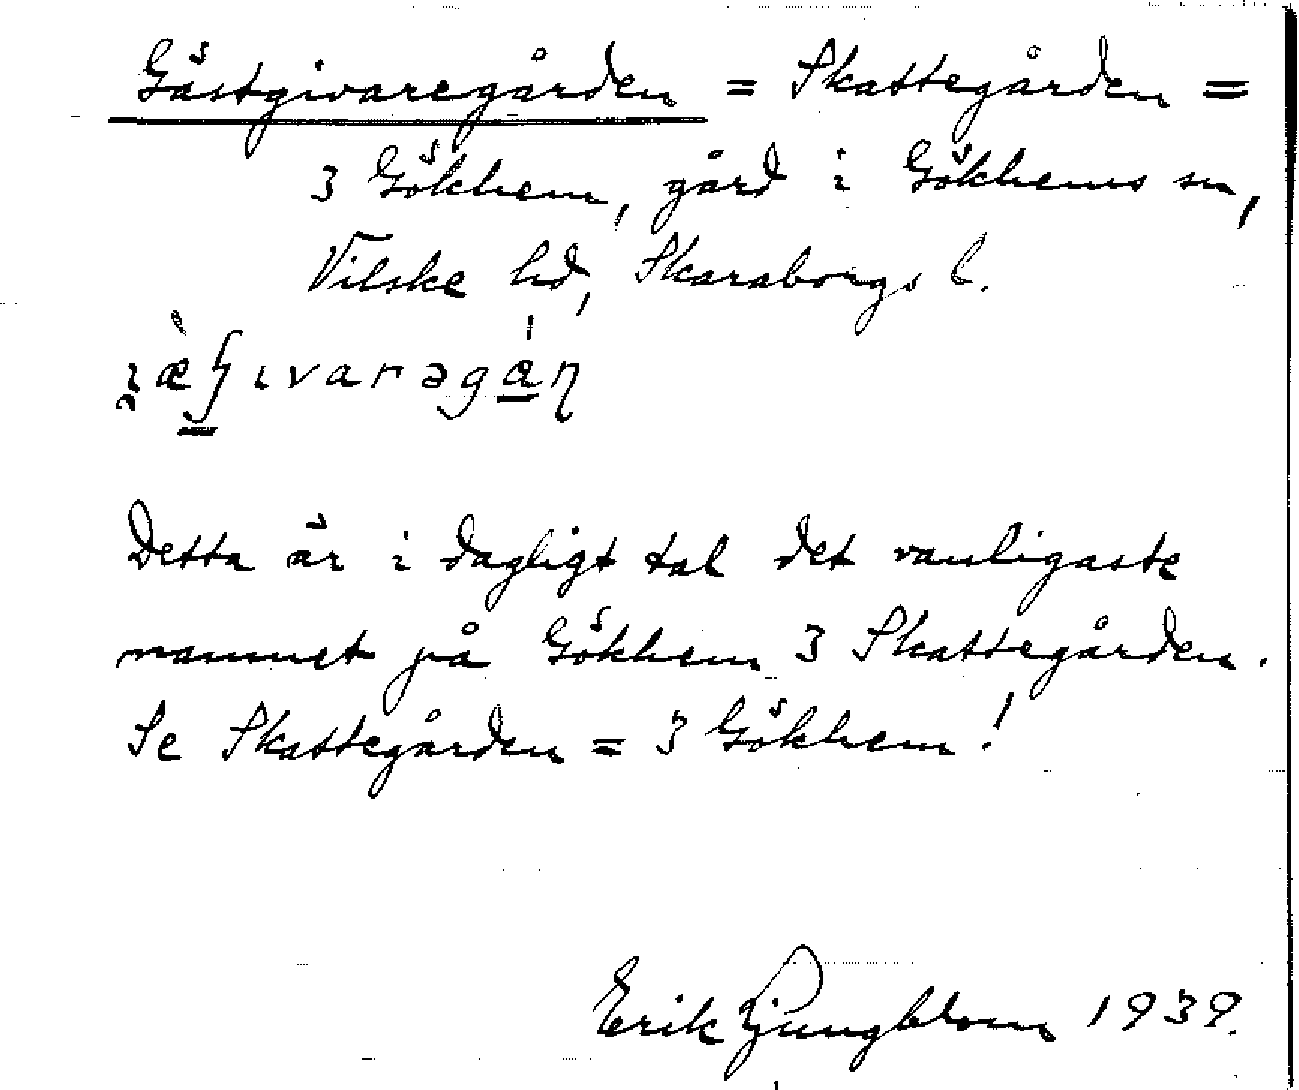 Gästgivaregården = Skattegården =
3 Gökhem, gård i Gökhems sn,
Vilske hd, Skaraborgs l.
Detta är i dagligt tal det vanligaste
namnet på Gökhem 3 Skattegården.
Se Skattegården = 3 Gökhem!
Erik Ljungblom 1939.